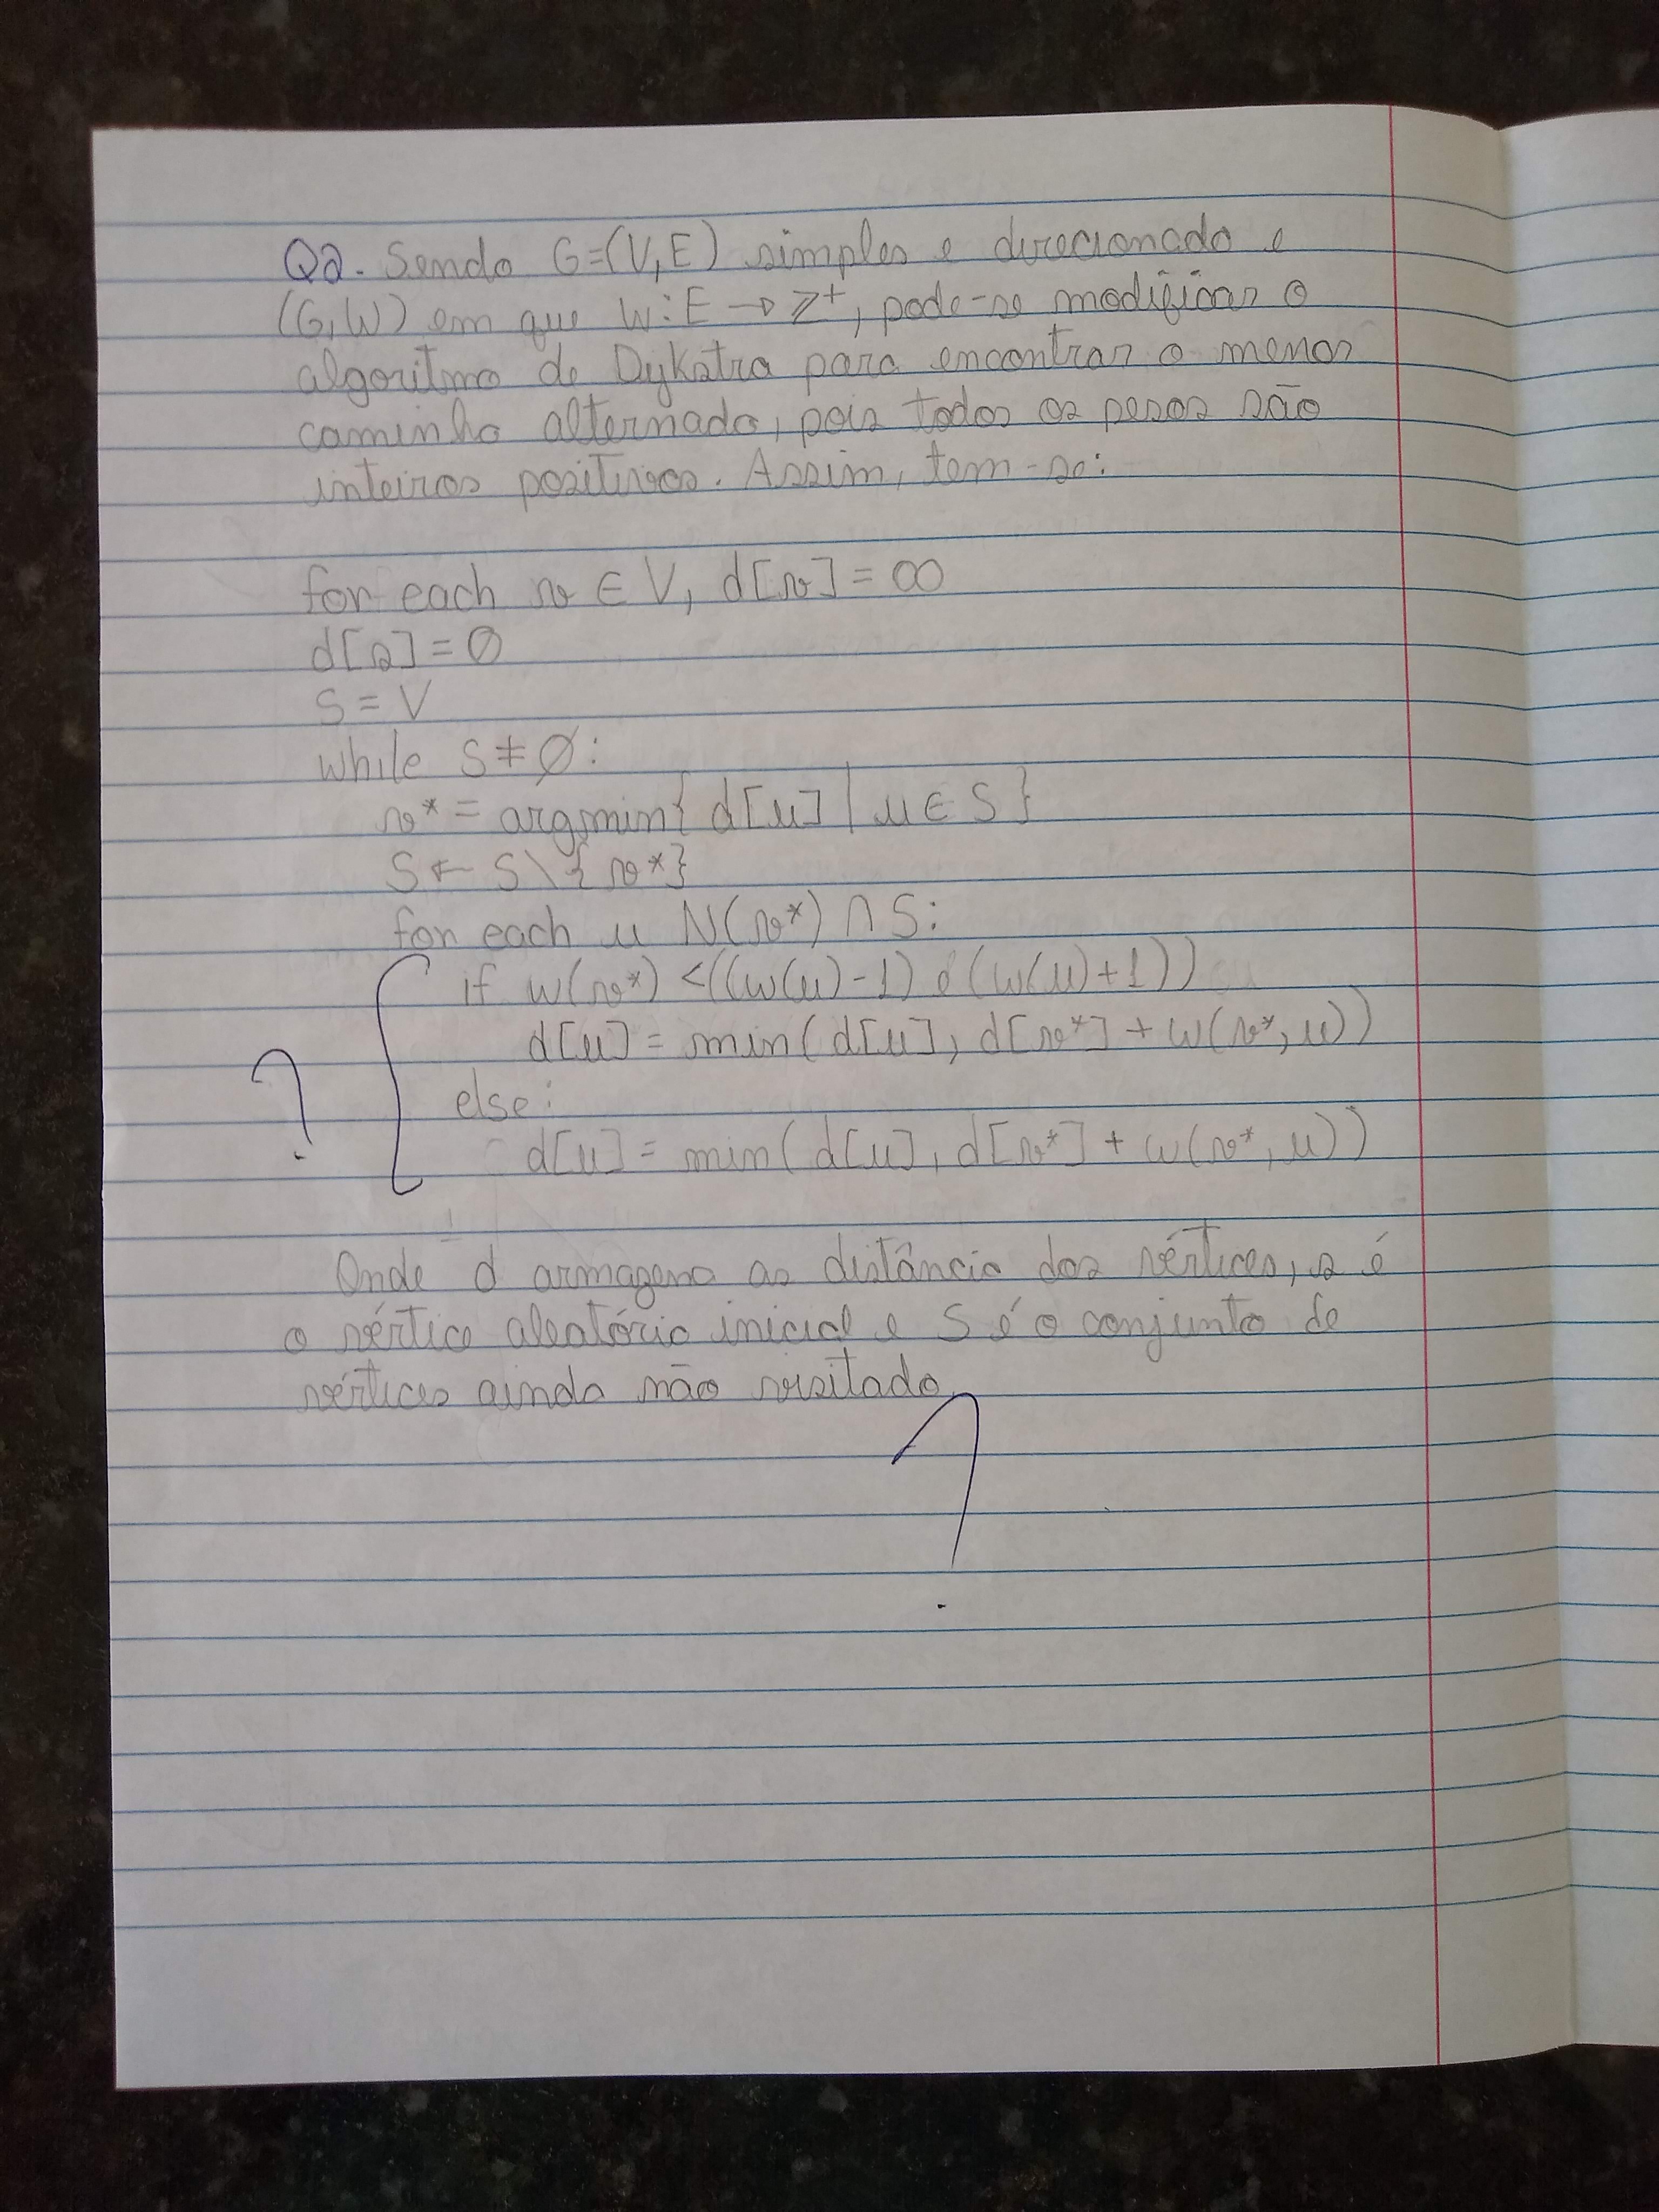 Q2. Sendo G=(V,E) simples e direcionado e
(G,W) em que W:E→Z⁺, pode-se modificar o
algoritmo de Dykstra para encontrar o menor
caminho alternado, pois todos os pesos são
inteiros positivos. Assim, tem-se:
for each v ∈ V, d[v] = ∞
d[s] = 0
S = V
while S ≠ ∅:
v* = argmin{ d[u] | u ∈ S }
S ← S \ { v* }
for each u N(v*) ∩ S:
if w(v*) < ((w(u)-1) e (w(u)+1))
d[u] = min(d[u], d[v*] + w(v*, u))
else:
d[u] = min(d[u], d[v*] + w(v*, u))
?
Onde d armazena as distância dos vértices, s é
o vértice aleatório inicial e S é o conjunto de
vértices ainda não visitado.
?